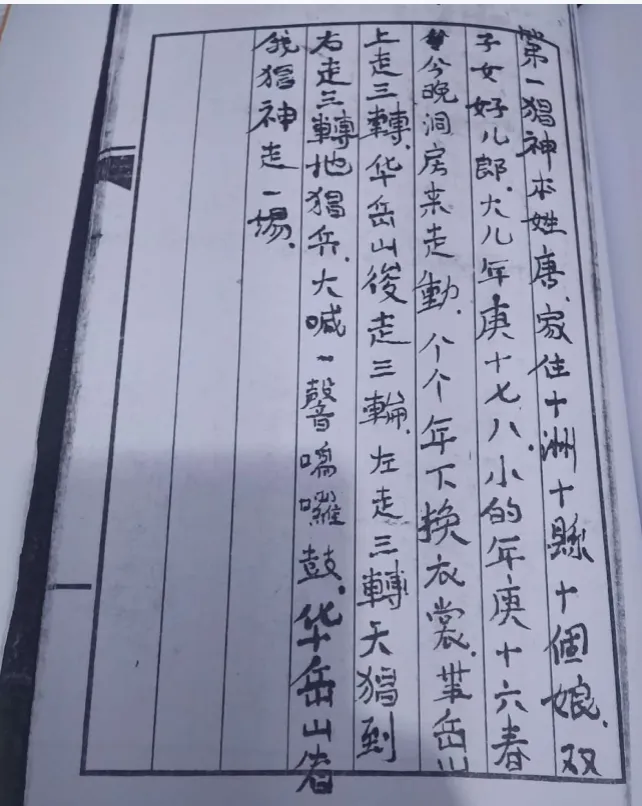 第一猖神本姓唐、家住十洲十縣十個娘、双
子女好儿郎、大儿年庚十七八、小的年庚十六春
今晚洞房来走動、个个年下换衣裳、華岳山
上走三轉、华岳山後走三輪、左走三轉天猖到
右走三轉地猖兵、大喊一聲嗚囉鼓、华岳山省
猖神走一場、